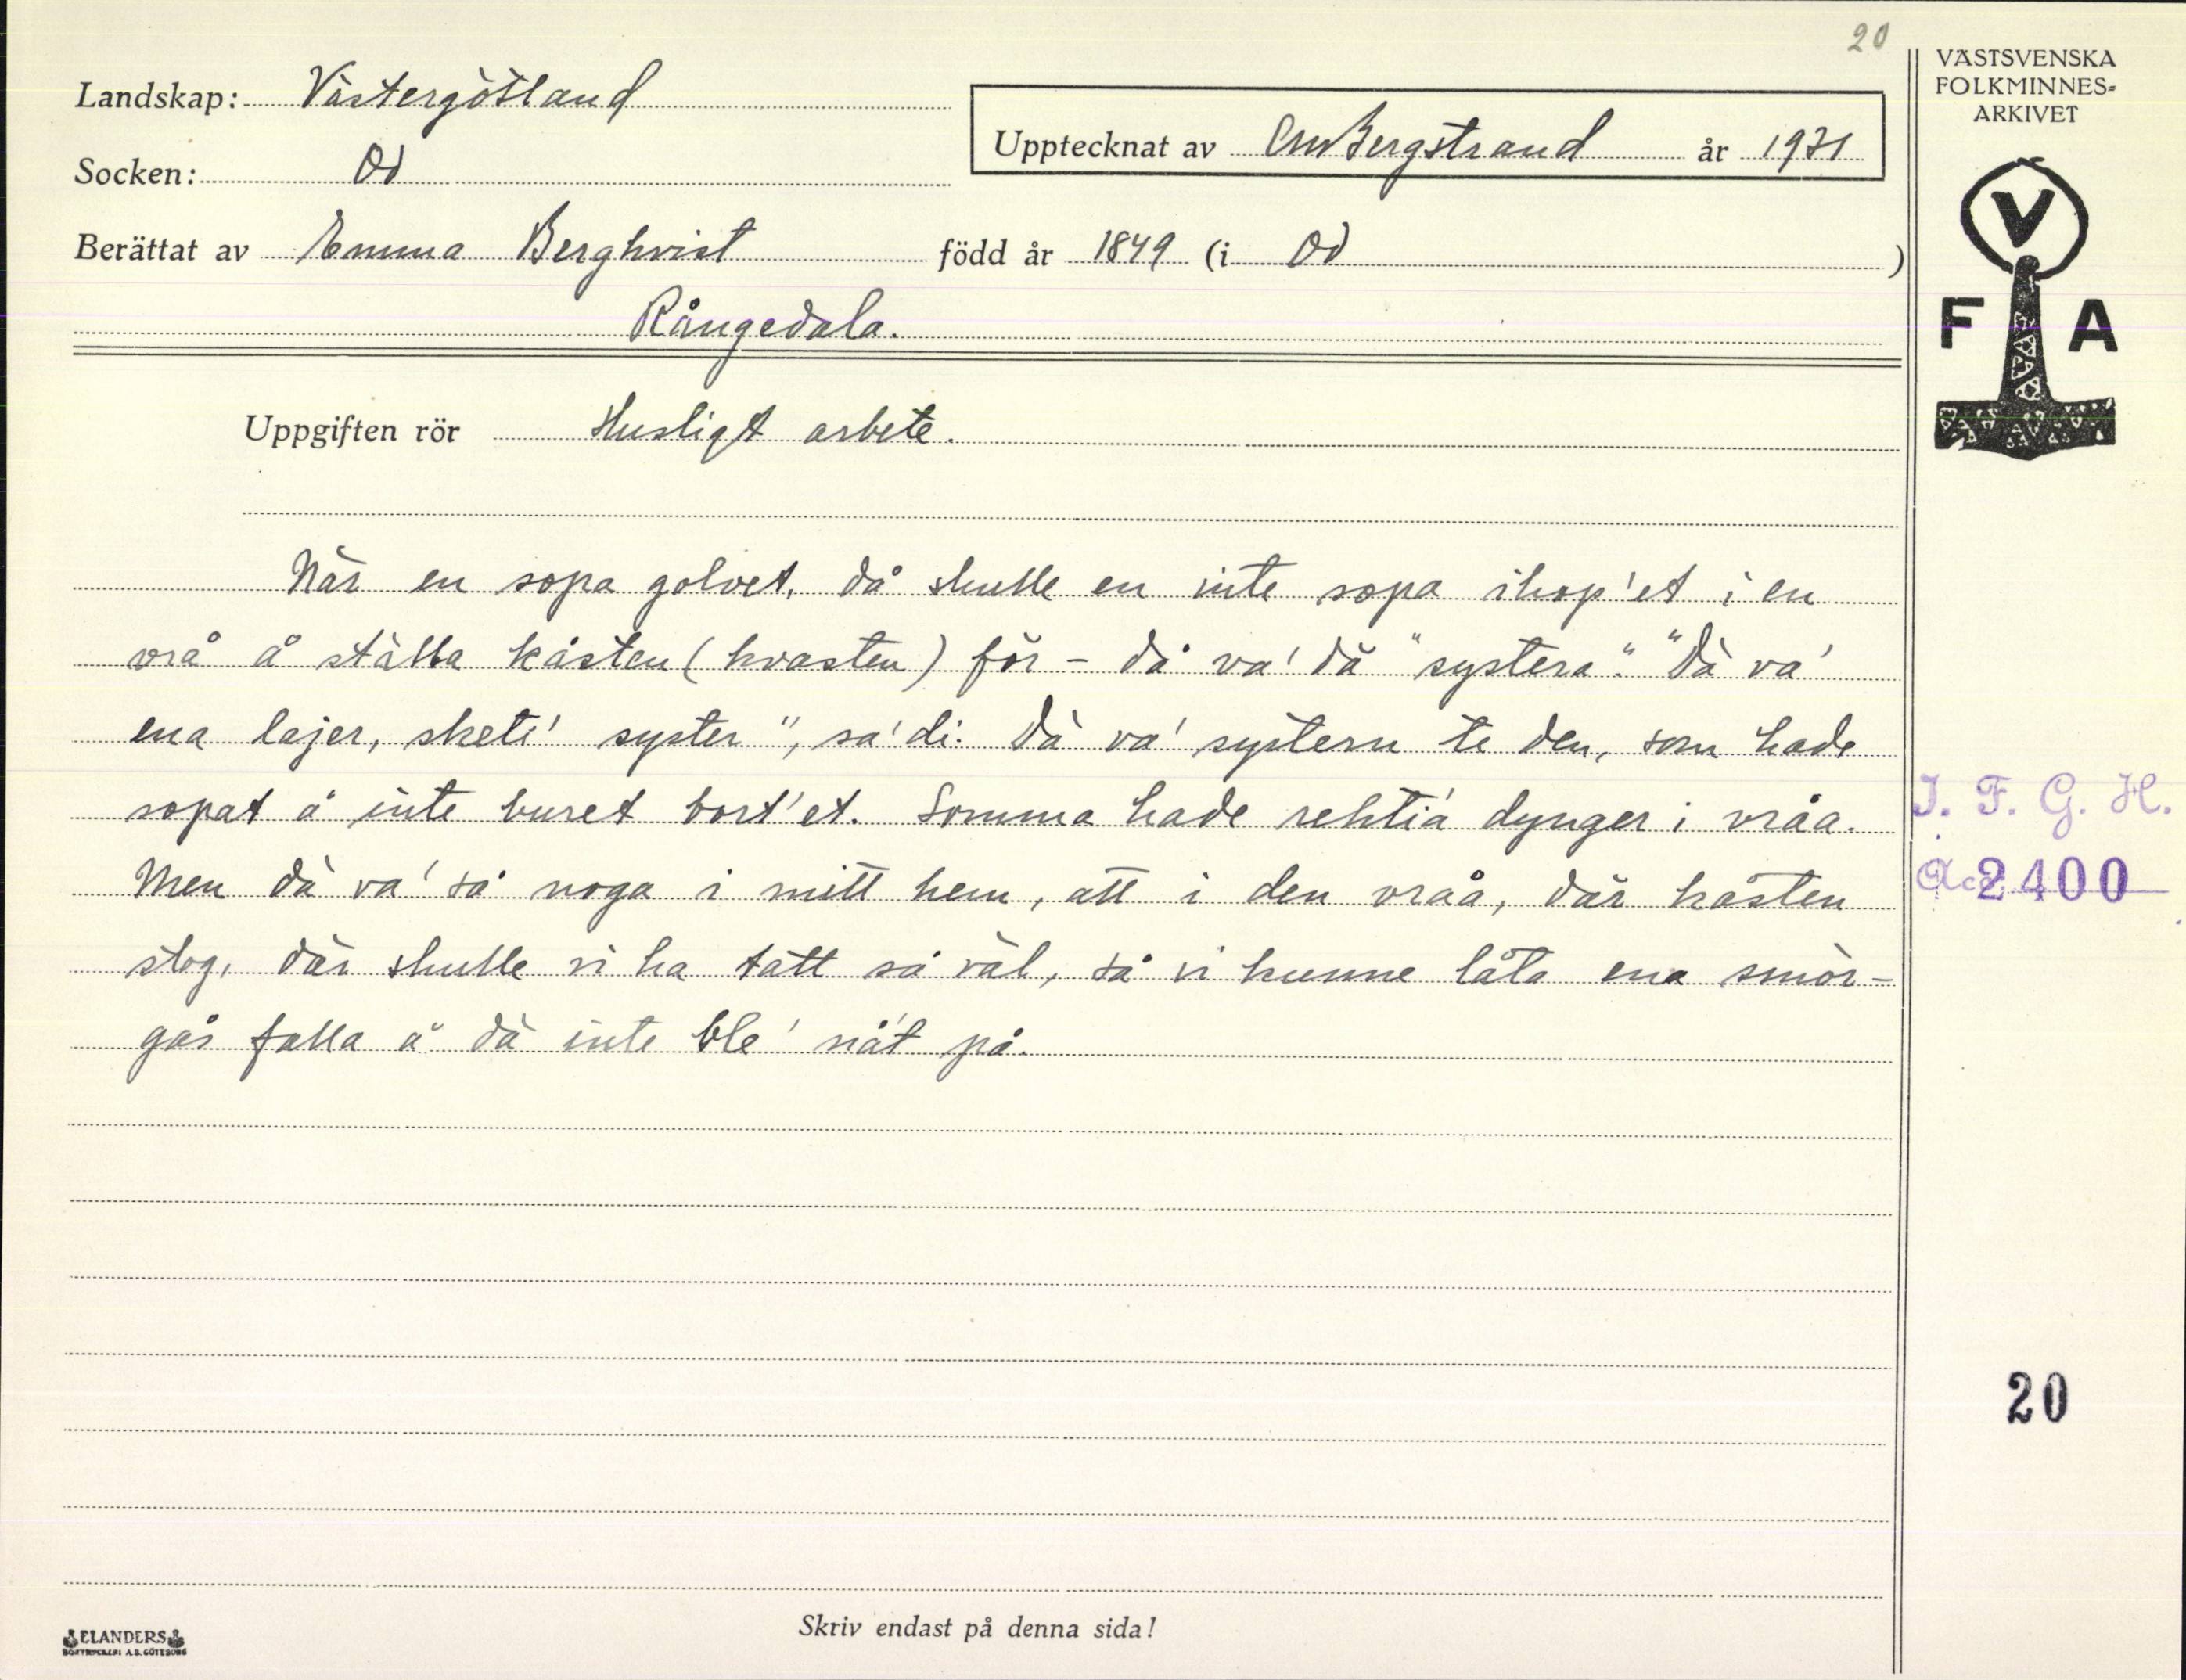 20
Landskap: Västergötland
Upptecknat av CMBergstrand år 1931
Socken: Od
Berättat av Emma Berghvist född år 1849 (i Od )
Rångedala.
Uppgiften rör Husligt arbete.
När en sopa golvet, då skulle en inte sopa ihop'et i en
vrå å ställa kåsten (kvasten) för - då va' dä "systera". "Dä va'
ena lajer, sketi' syster", sa' di. Dä va' systern te den, som hade
sopat å inte buret bort'et. Somma hade rektiá dynger i vråa.
Men dä va' så noga i mitt hem, att i den vråå, där kåsten
stog, där skulle vi ha tatt så väl, så vi kunne låta ena smör-
gås falla å dä inte ble' nåt på.
Skriv endast på denna sida!
ELANDERS
BOKTRYCKERI A.B. GÖTEBORG
VÄSTSVENSKA
FOLKMINNES-
ARKIVET
V
F A
I. F. G. H.
Acc. 2400
20